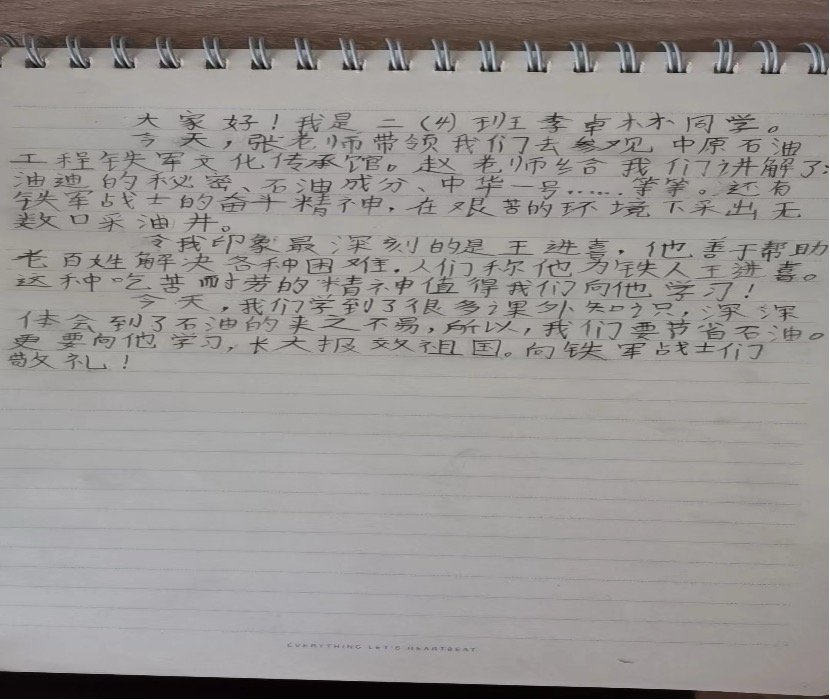 大家好！我是二（4）班李卓林同学。
今天，张老师带领我们去参观中原石油
工程铁军文化传承馆。赵老师给我们讲解了：
油迪的秘密、石油成分、中华一号……等等。还有
铁军战士的奋斗精神，在艰苦的环境下采出无
数口采油井。
令我印象最深刻的是王进喜，他善于帮助
老百姓解决各种困难，人们称他为铁人王进喜。
这种吃苦耐劳的精神值得我们向他学习！
今天，我们学到了很多课外知识，深深
体会到了石油的来之不易，所以，我们要节省石油。
更要向他学习，长大报效祖国。向铁军战士们
敬礼！
EVERYTHING LET'S HEARTBEAT